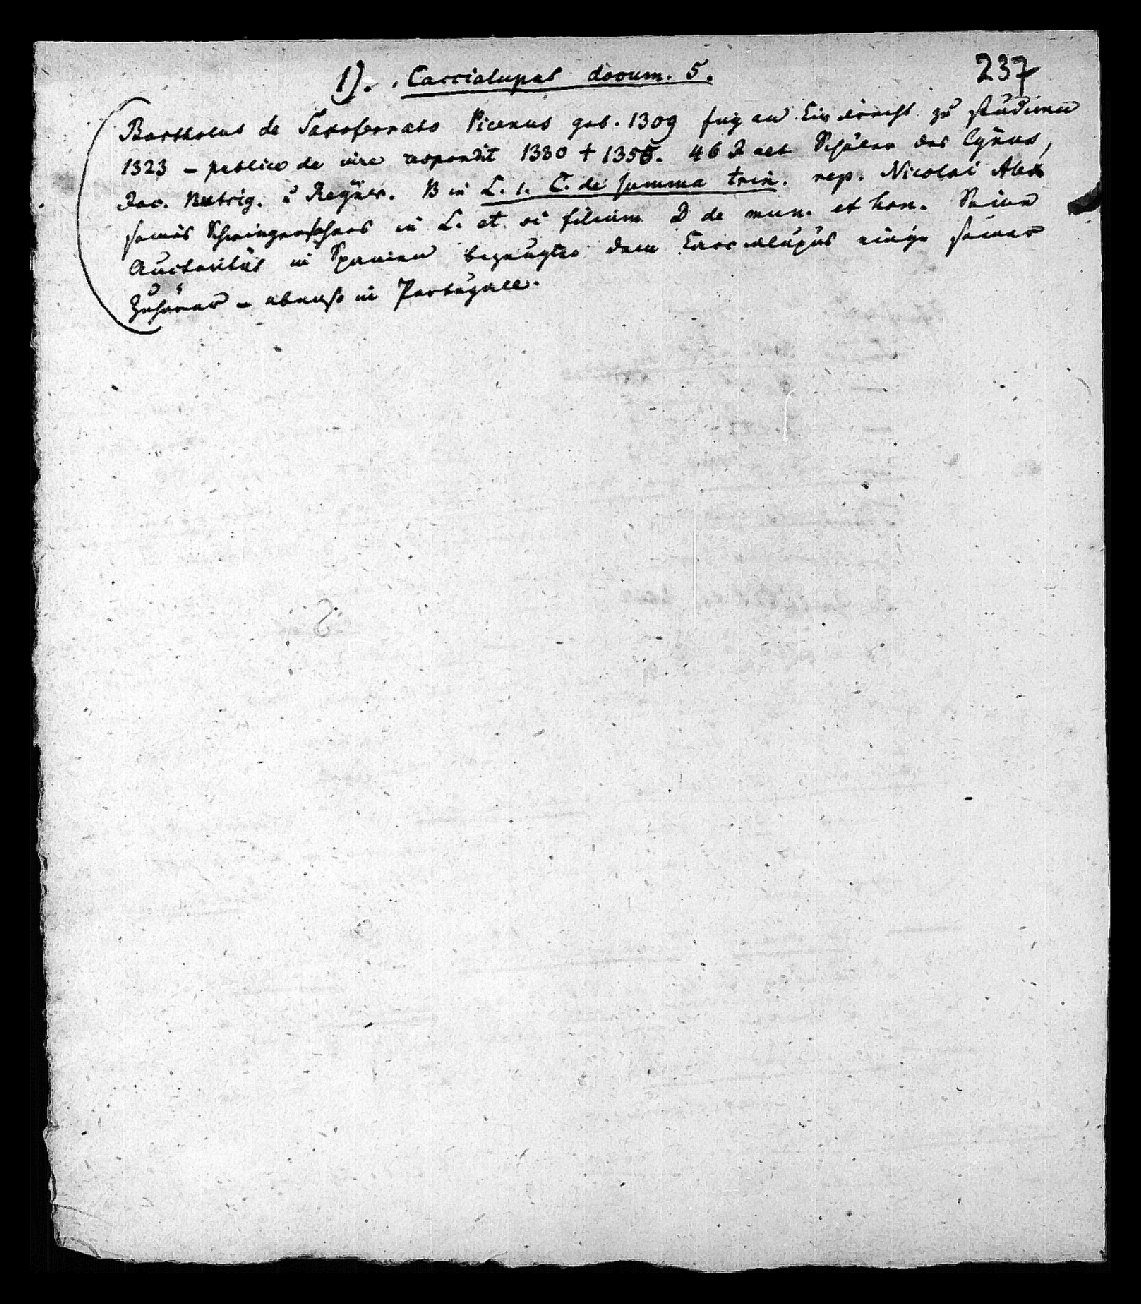 237
1). Caccialupus docum. 5.
Bartholus de Saxoferrato Picenus geb. 1309 fing an Civilrecht zu studiren
1323 – publice de iure respondit 1330 † 1355. 46 Schüler des Cynus,
Jac. Butrig. u Reyner. B in L. 1. C. de summa trin. rep. Nicolai Alex
seines Schwiegersohnes in L. et si filium D de mun. et hon. Seine
Auctorität in Spanien bezeugten dem Caccialupus einige seiner
Zuhörer – ebenso in Portugall.